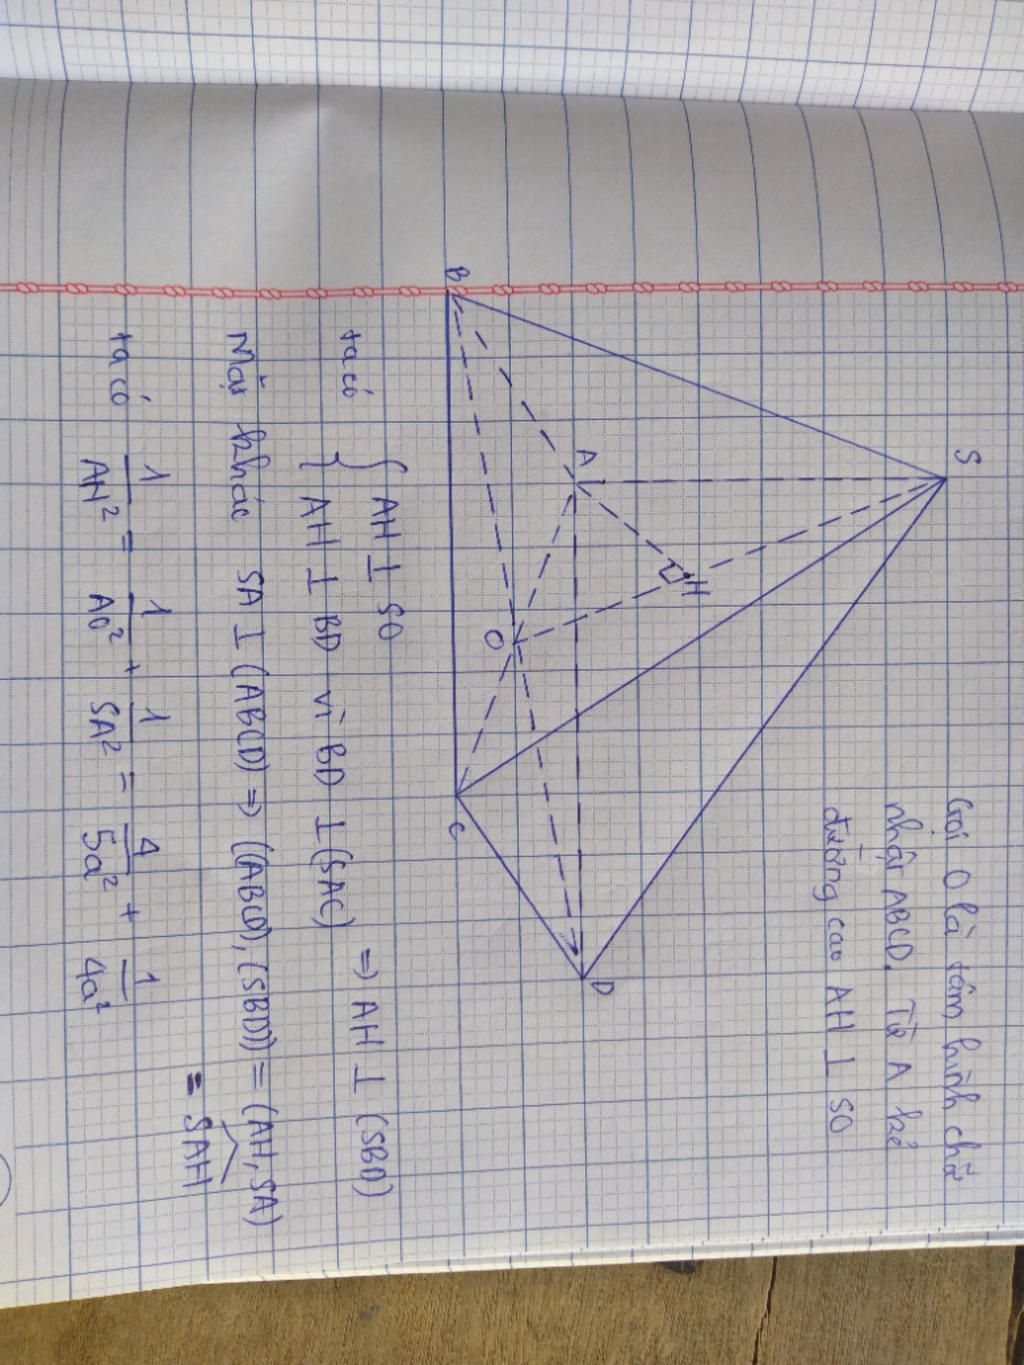 Gọi O là tâm hình chữ
nhật ABCD. Từ A kẻ
đường cao AH ⊥ SO
S
A
H
B
O
D
C
ta có { AH ⊥ SO
AH ⊥ BD vì BD ⊥ (SAC) => AH ⊥ (SBD)
Mặt khác SA ⊥ (ABCD) => ((ABCD), (SBD)) = (AH, SA)
= SAH
ta có 1/AH² = 1/AO² + 1/SA² = 4/5a² + 1/4a²